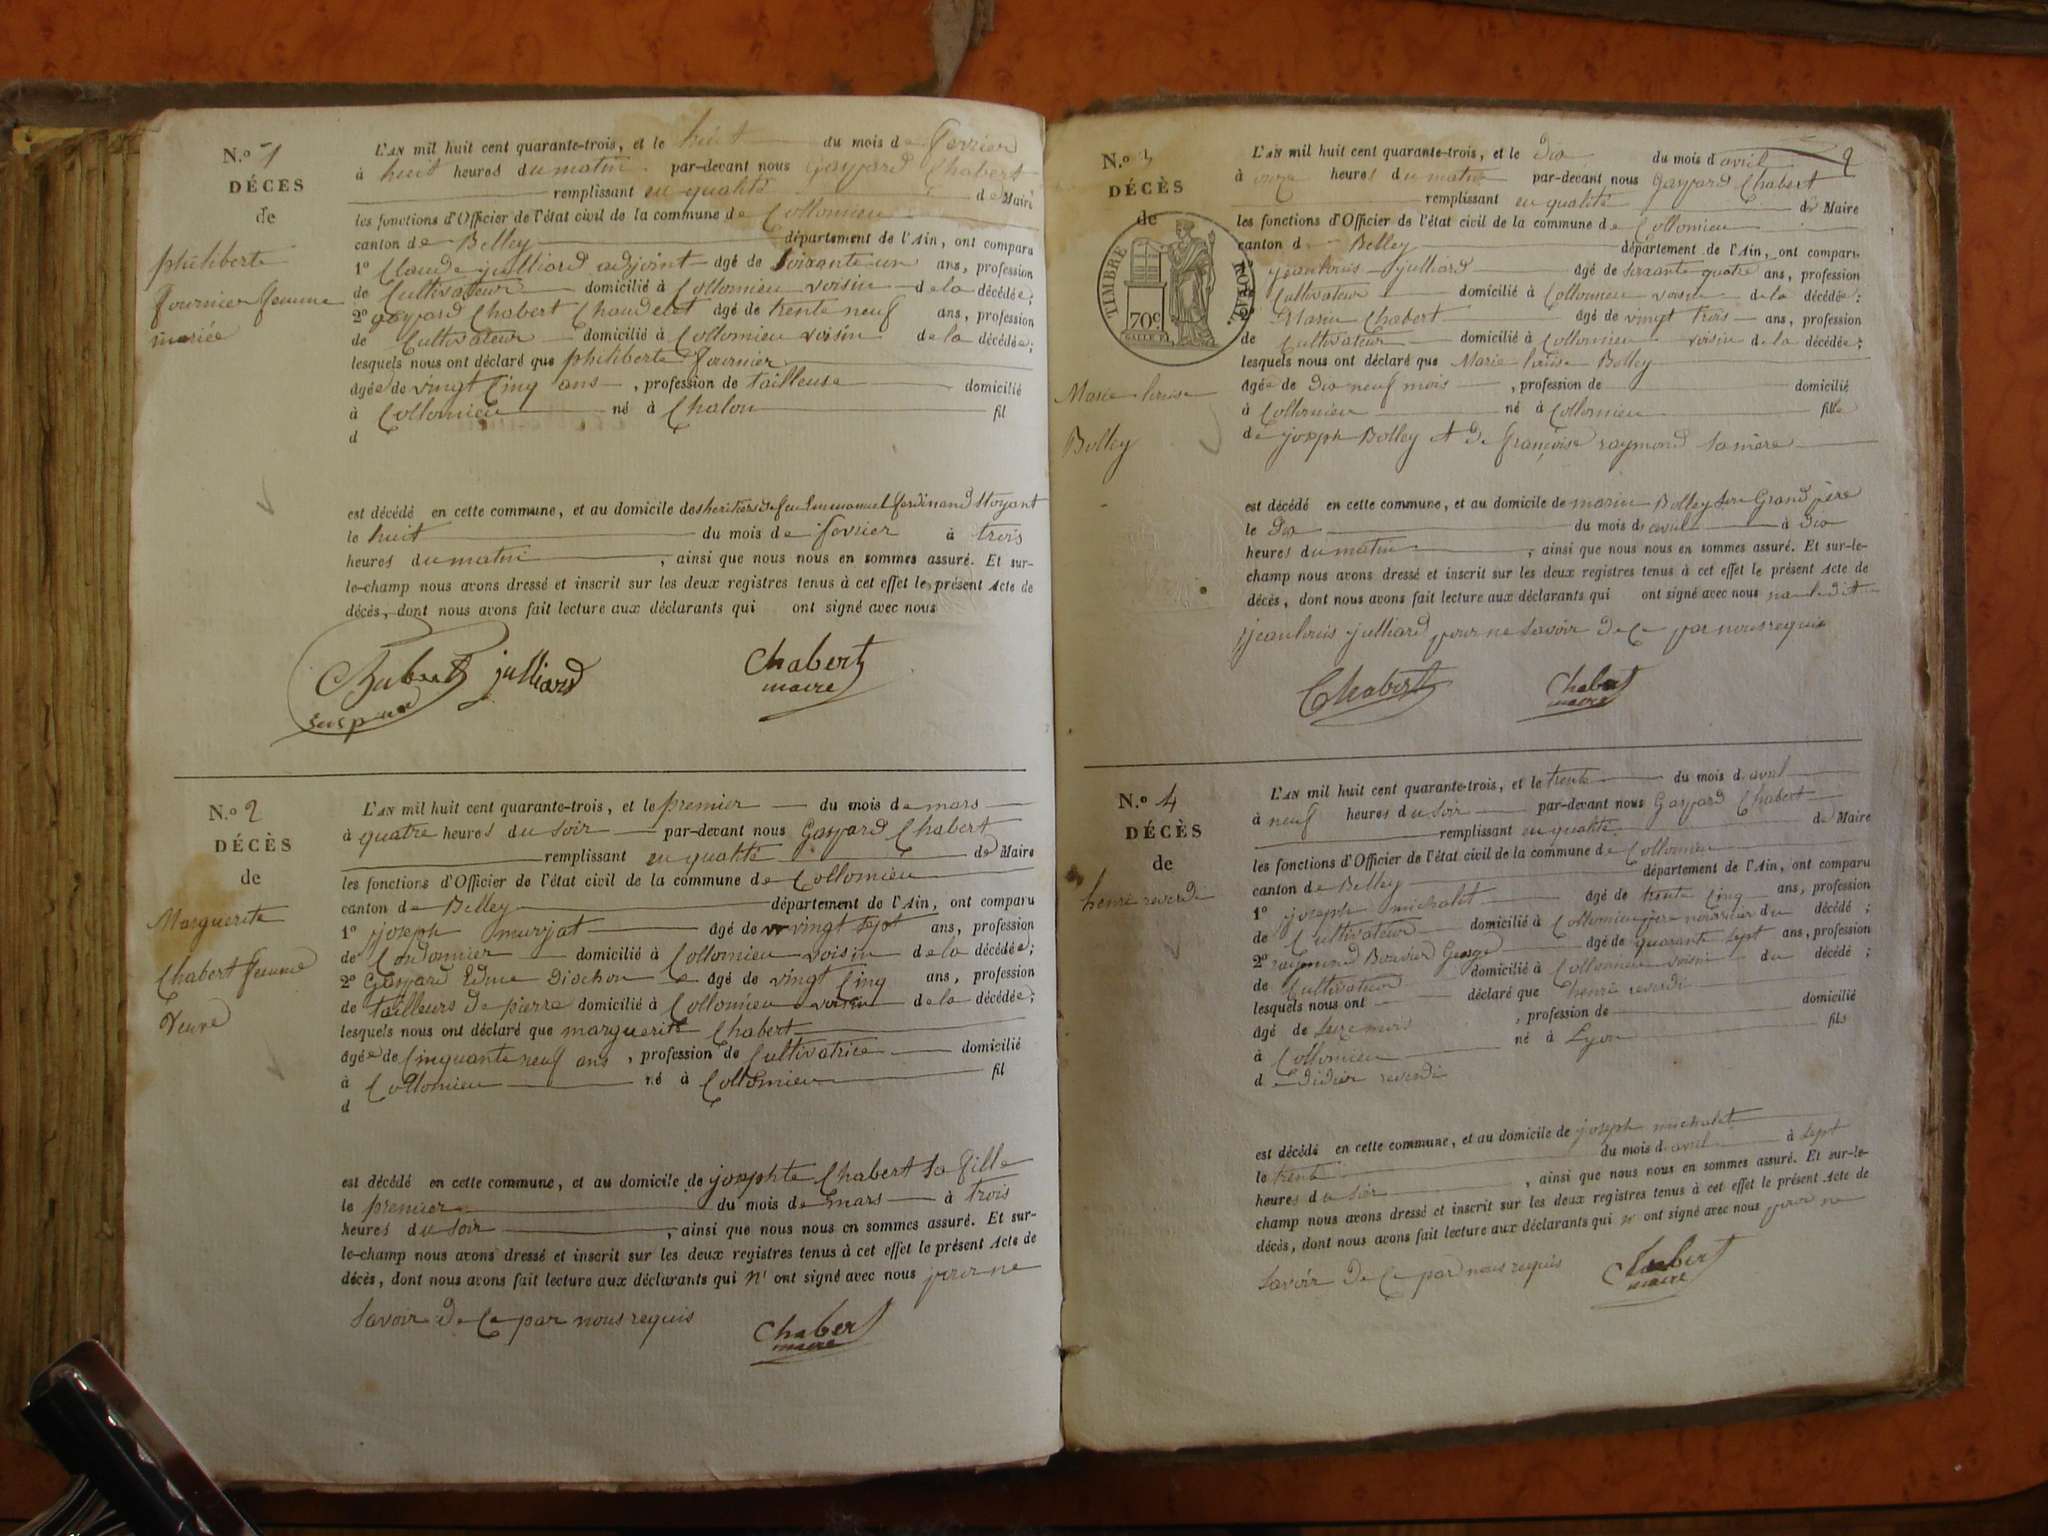 N.o 1
DÉCES
de
philiberte
fournier femme
mariée
L'AN mil huit cent quarante-trois, et le huit du mois de fevrier
à huit heures du matin par-devant nous Gaspard Chabert
remplissant en qualité de Maire
les fonctions d'Officier de l'état civil de la commune de Collomieu
canton de Belley département de l'Ain, ont comparu
1o Claude julliard adjoint âgé de Soixante un ans, profession
de Cultivateur domicilié à Collomieu voisin de la décédée;
2o gaspard Chabert Chaudelet âgé de trente neuf ans, profession
de Cultivateur domicilié à Collomieu voisin de la décédée;
lesquels nous ont déclaré que philiberte fournier
âgée de vingt Cinq ans, profession de tailleuse domicilié
à Collomieu né à Chalon fil
d
est décédé en cette commune, et au domicile des heritiers de feu Emmanuel ferdinand
le huit du mois de fevrier à trois
heures du matin, ainsi que nous nous en sommes assuré. Et sur-
le-champ nous avons dressé et inscrit sur les deux registres tenus à cet effet le présent Acte de
décès, dont nous avons fait lecture aux déclarants qui ont signé avec nous
julliard Chabert
maire
N.o 2
DÉCÈS
de
Marguerite
Chabert femme
Veuve
L'AN mil huit cent quarante-trois, et le premier du mois de mars
à quatre heures du soir par-devant nous Gaspard Chabert
remplissant en qualité de Maire
les fonctions d'Officier de l'état civil de la commune de Collomieu
canton de Belley département de l'Ain, ont comparu
1o joseph murjat âgé de vingt sept ans, profession
de Cordonnier domicilié à Collomieu voisin de la décédée;
2o Gaspard Edme Diochon âgé de vingt Cinq ans, profession
de tailleurs de pierre domicilié à Collomieu voisin de la décédée;
lesquels nous ont déclaré que marguerite Chabert
âgée de Cinquante neuf ans, profession de Cultivatrice domicilié
à Collomieu né à Collomieu fil
d
est décédé en cette commune, et au domicile de josephte Chabert sa fille
le premier du mois de mars à trois
heures du soir, ainsi que nous nous en sommes assuré. Et sur-
le-champ nous avons dressé et inscrit sur les deux registres tenus à cet effet le présent Acte de
décès, dont nous avons fait lecture aux déclarants qui n' ont signé avec nous pour ne
savoir de Ce par nous requis
Chabert
maire
2
N.o 3
DÉCÈS
de
TIMBRE ROYAL
70c
Marie louise
Bolley
L'AN mil huit cent quarante-trois, et le Dix du mois d avril
à onze heures du matin par-devant nous Gaspard Chabert
remplissant en qualité de Maire
les fonctions d'Officier de l'état civil de la commune de Collomieu
canton d Belley département de l'Ain, ont comparu
jean louis julliard âgé de soixante quatre ans, profession
de Cultivateur domicilié à Collomieu voisin de la décédée;
Marin Chabert âgé de vingt trois ans, profession
de Cultivateur domicilié à Collomieu voisin de la décédée;
lesquels nous ont déclaré que Marie louise Bolley
âgée de Dix neuf mois, profession de domicilié
à Collomieu né à Collomieu fille
de joseph Bolley et de françoise raymond sa mère
est décédé en cette commune, et au domicile de marin Bolley son Grand père
le Dix du mois d avril à Dix
heures du matin, ainsi que nous nous en sommes assuré. Et sur-le-
champ nous avons dressé et inscrit sur les deux registres tenus à cet effet le présent Acte de
décès, dont nous avons fait lecture aux déclarants qui ont signé avec nous non ledit
jean louis julliard pour ne savoir de Ce par nous requis
Chabert Chabert
maire
N.o 4
DÉCÈS
de
henri reverdi
L'AN mil huit cent quarante-trois, et le trente du mois d avril
à neuf heures du soir par-devant nous Gaspard Chabert
remplissant en qualité de Maire
les fonctions d'Officier de l'état civil de la commune de Collomieu
canton de Belley département de l'Ain, ont comparu
1o joseph michalet âgé de trente Cinq ans, profession
de Cultivateur domicilié à Collomieu père nourricier du décédé;
2o raymond Bouvier George âgé de quarante sept ans, profession
de Cultivateur domicilié à Collomieu voisin du décédé;
lesquels nous ont déclaré que henri reverdi
âgé de seize mois, profession de domicilié
à Collomieu né à Lyon fils
de Didier reverdi
est décédé en cette commune, et au domicile de joseph michalet
le trente du mois d avril à sept
heures du soir, ainsi que nous nous en sommes assuré. Et sur-le-
champ nous avons dressé et inscrit sur les deux registres tenus à cet effet le présent Acte de
décès, dont nous avons fait lecture aux déclarants qui n' ont signé avec nous pour ne
savoir de Ce par nous requis
Chabert
maire